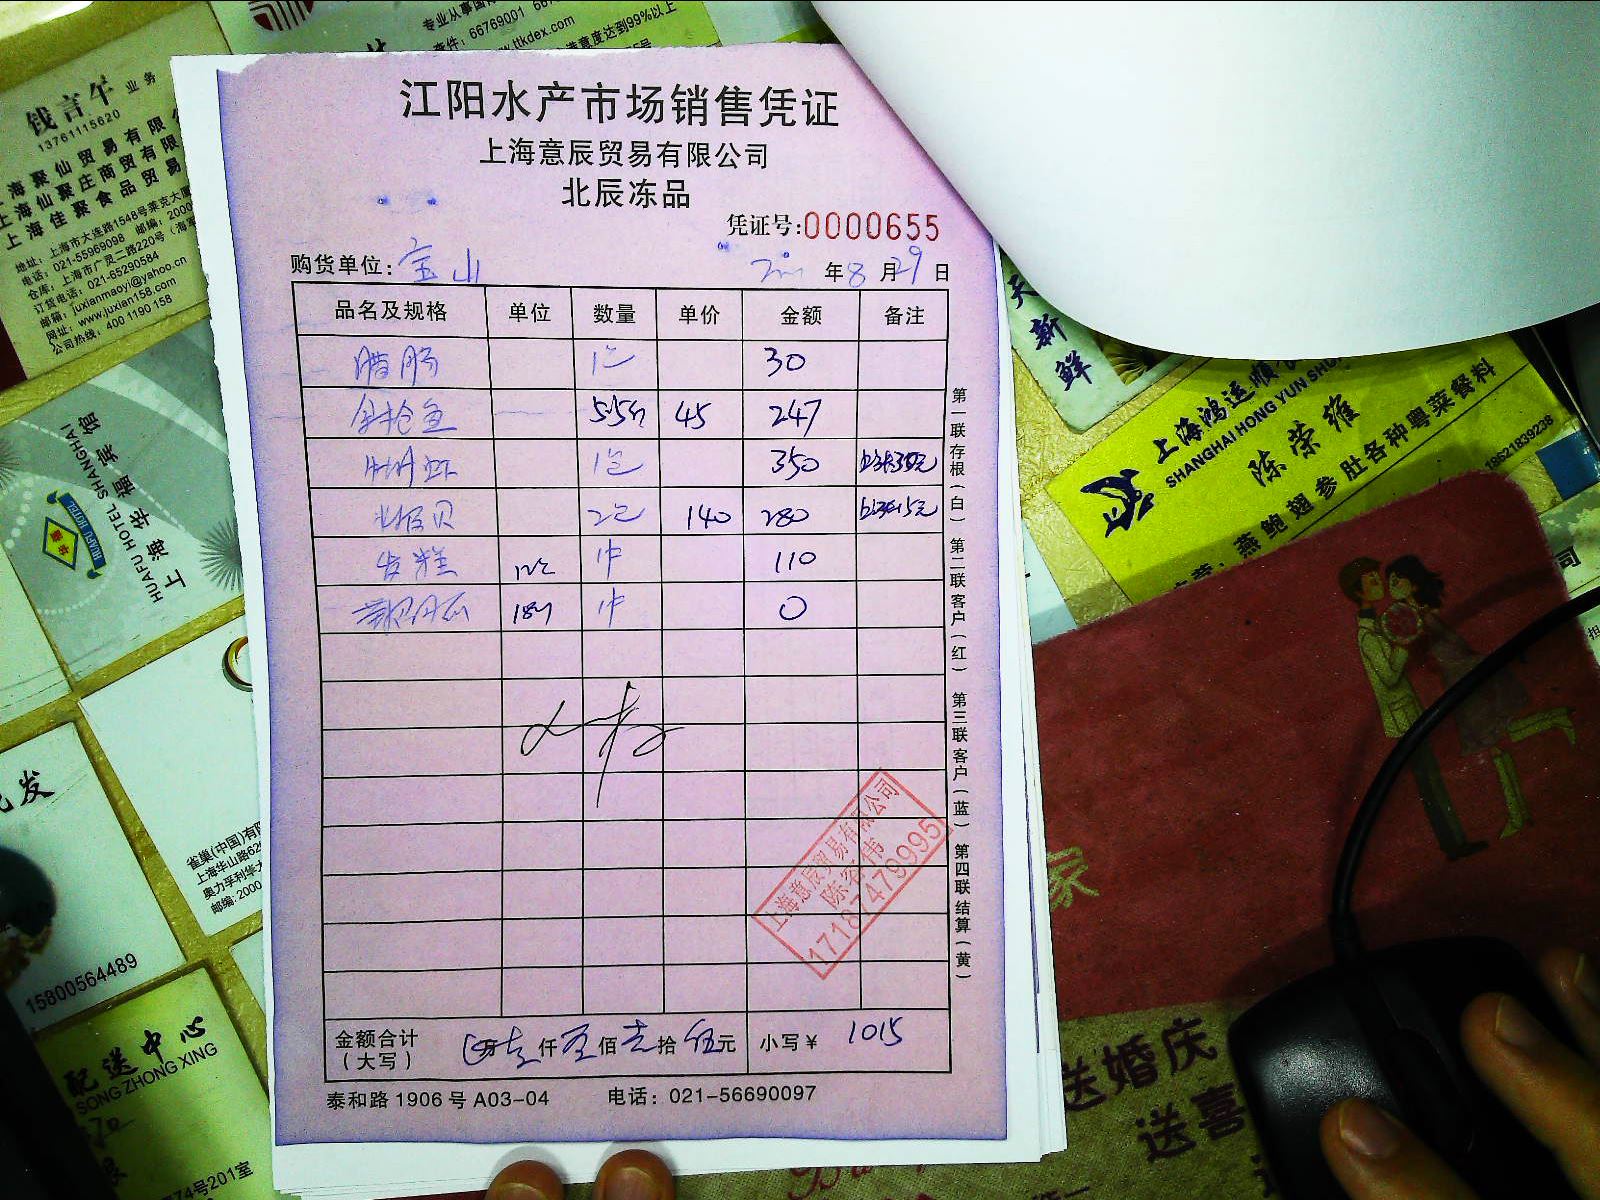 江阳水产市场销售凭证
上海意辰贸易有限公司
北辰冻品
凭证号:0000655
购货单位: 宝山 年 8 月 29 日
品名及规格 单位 数量 单价 金额 备注
腊肠 1包 30
金枪鱼 5.5斤 45 247
1包 350
北极贝 2包 140 280
发糕 12包 1件 110
1件 0
金额合计
(大写) 万 壹 仟 零 佰 壹 拾 伍 元 小写¥ 1015
泰和路1906号A03-04 电话: 021-56690097
第一联 存根(白) 第二联 客户(红) 第三联 客户(蓝) 第四联 结算(黄)
上海意辰贸易有限公司
17187479995
钱言午 业务
13761115620
上海聚仙贸易有限公
上海仙聚庄商贸有限
上海佳聚食品贸易
地址: 上海市大连路1548号莱克大厦
电话: 021-55969098 邮编: 2000
仓库: 上海市广灵二路220号(海军
订货电话: 021-65290584
邮箱: juxianmaoyi@yahoo.cn
网址: www.juxian158.com
公司热线: 400 1190 158
专业从事国
66769001
www.ttkdex.com
意度达到99%以上
HUAFU HOTEL SHANGHAI
上海华福宾馆
HUAFU HOTEL
天
新
鲜
上海鸿运顺
SHANGHAI HONG YUN SHU
陈荣雄
燕鲍翅参肚各种粤菜餐料
18621839238
发
雀巢(中国)有限
上海华山路62
奥力孚利华大
邮编: 2000
15800564489
配送中心
SONG ZHONG XING
74号201室
家
送婚庆
送喜
司